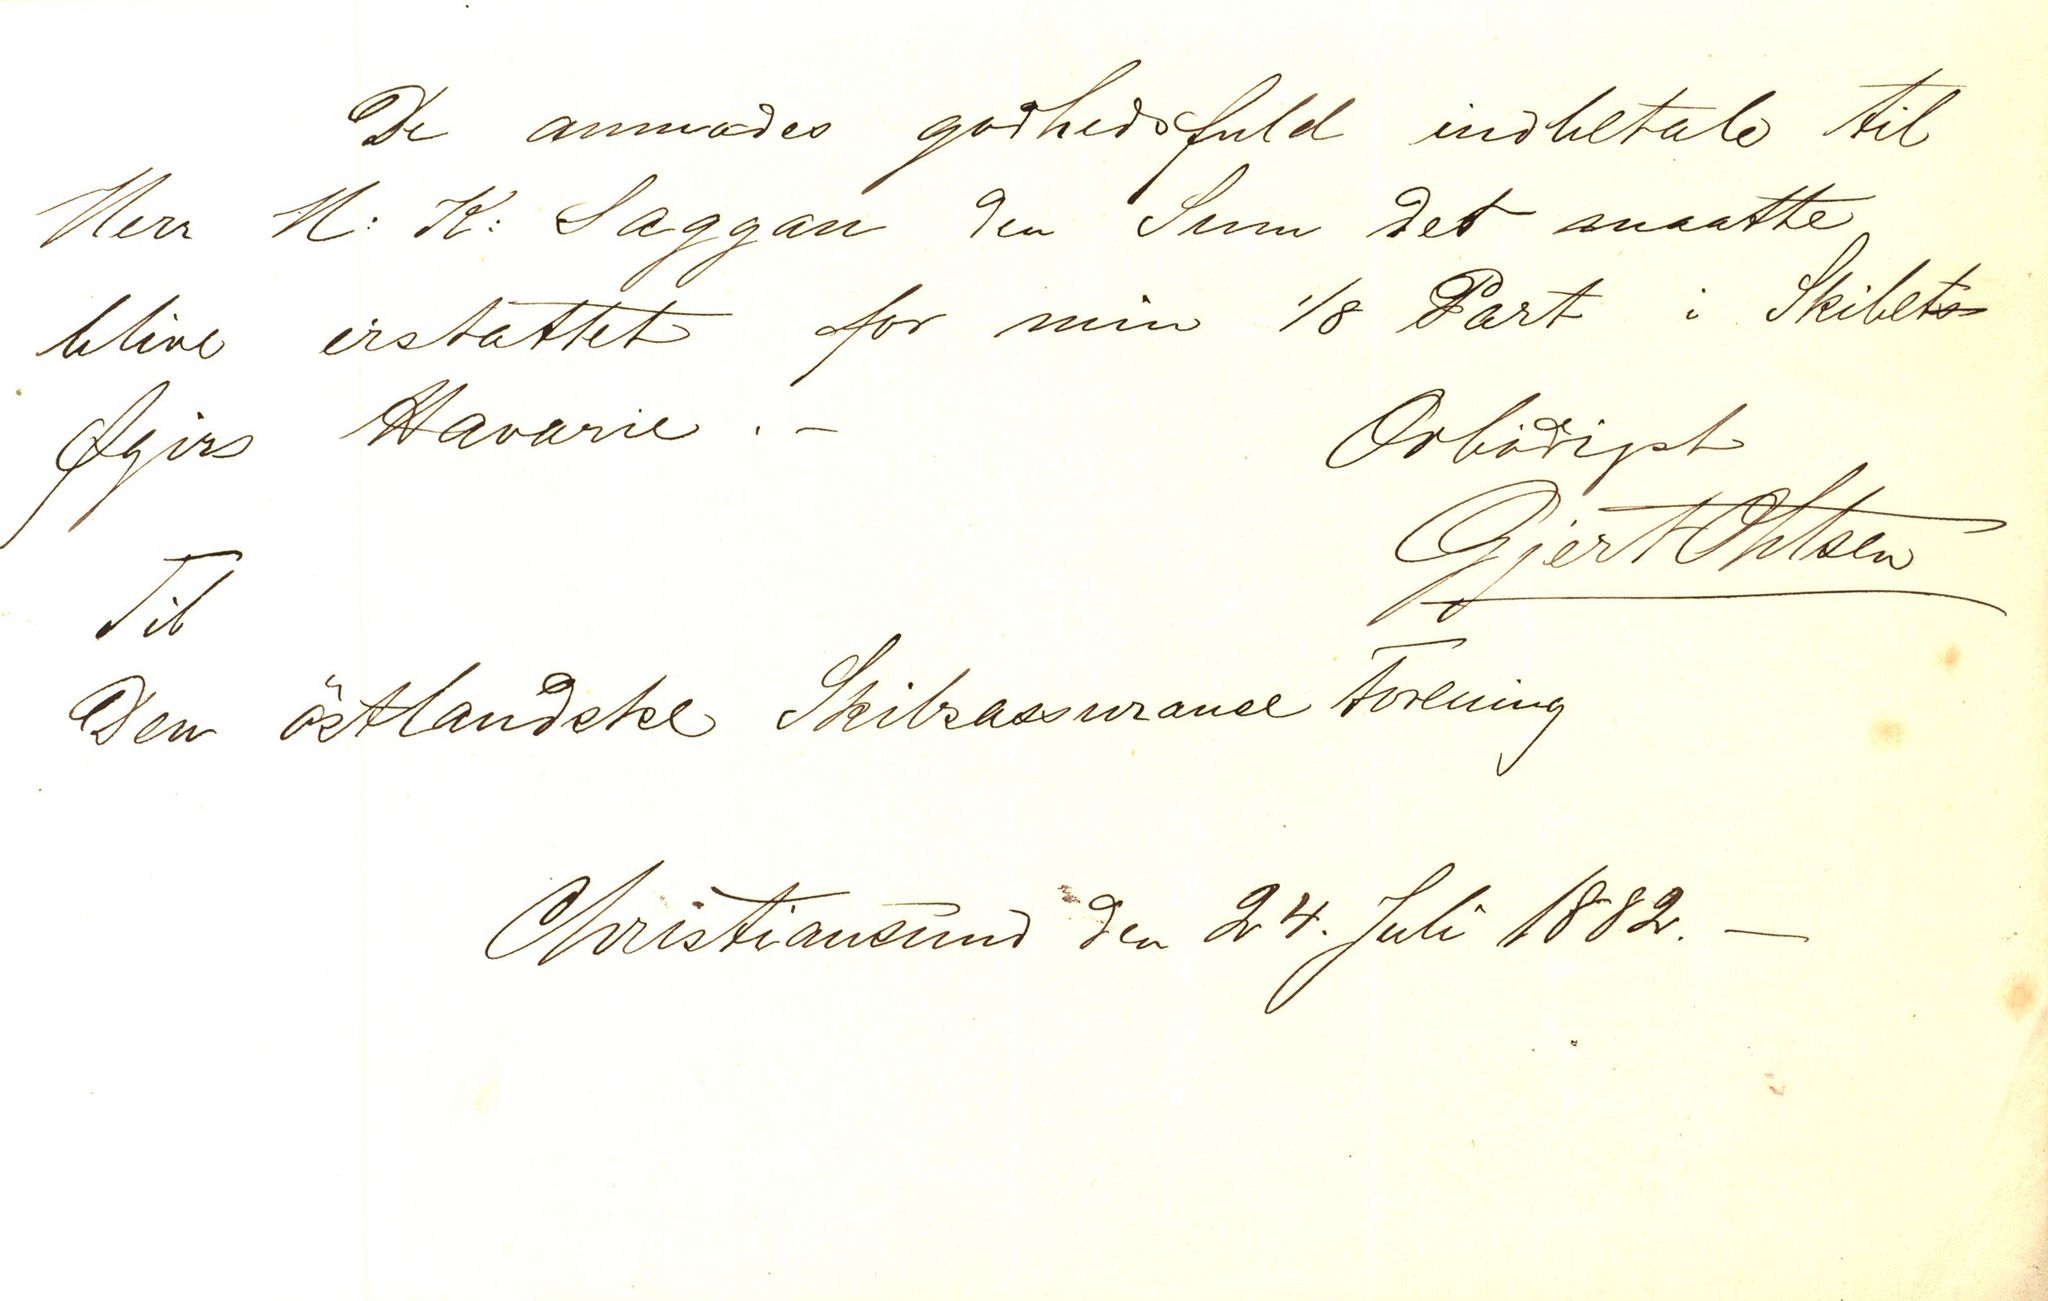 De anmodes godhedsfuld indbetale til
Herr N: K: Saggau den Sum det maatte
blive erstattet for min 1/8 Part i Skibets
Øgirs Havarie. —
Ærbödigst
Gjert Ohlsen
Til
Den östlandske Skibsassurance Forening
Christiansund den 24. Juli 1882. —